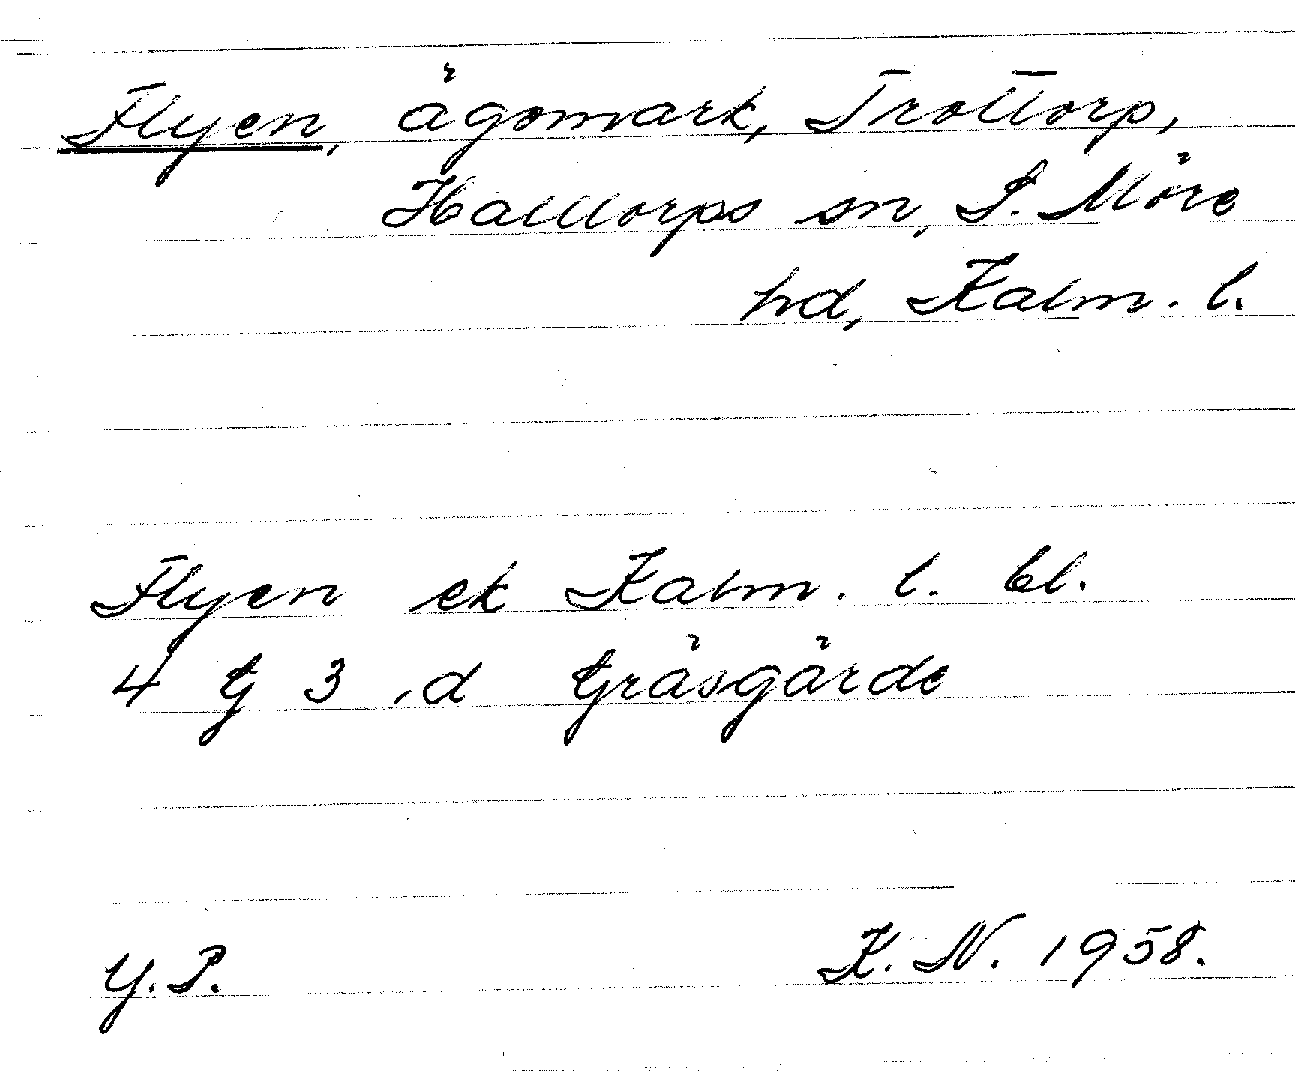 Flyen, ägomark, Trolltorp,
Halltorps sn, S. Möre
hd, Kalm. l.
Flyen ek Kalm. l. bl.
4 G 3 d Gräsgärde
Y.P.
K. N. 1958.